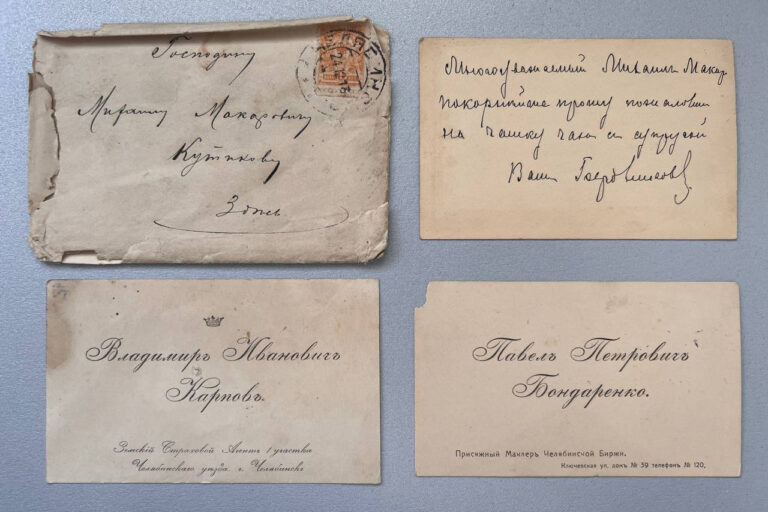 Господину
Михаилу Макаровичу
Кутикову
Здѣсь
Многоуважаемый Михаилъ Макар
покорнѣйше прошу пожаловать
на чашку чаю съ супругой
Вашъ
Владимиръ Ивановичъ
Карповъ.
Земскій Страховой Агентъ 1 участка
Челябинскаго уѣзда г. Челябинскъ
Павелъ Петровичъ
Бондаренко.
Присяжный Маклеръ Челябинской Биржи.
Ключевская ул. домъ № 39 телефонъ № 120,